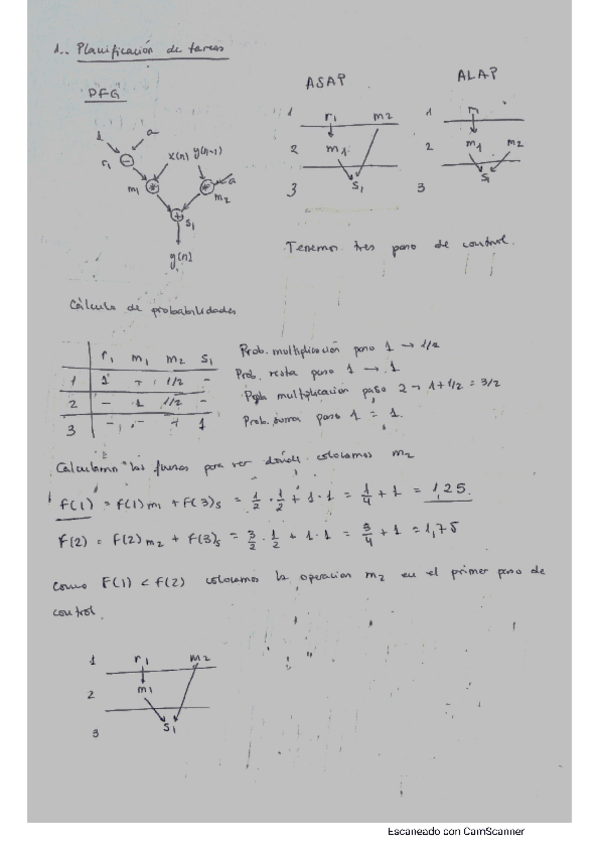 1.. Planificación de tareas
DFG
ASAP
ALAP
1 a
r1 −
x(n) y(n-1)
m1 * * a
m2
+ s1
y(n)
1 r1 m2
2 m1
3 s1
1 r1
2 m1 m2
3 s1
Tenemos tres paso de control.
Cálculo de probabilidades
r1 m1 m2 s1
1 1 - 1/2 -
2 - 1 1/2 -
3 - - - 1
Prob. multiplicación paso 1 → 1/2
Prob. resta paso 1 → 1
Prob. multiplicacion paso 2 → 1 + 1/2 = 3/2
Prob. suma paso 1 = 1.
Calculamn las fuerzas para ver dónde colocamos m2
F(1) = F(1)m1 + F(3)s = 1/2 · 1/2 + 1·1 = 1/4 + 1 = 1,25.
F(2) = F(2)m2 + F(3)s = 3/2 · 1/2 + 1·1 = 3/4 + 1 = 1,75
Como F(1) < F(2) colocamos la operacion m2 en el primer paso de
control.
1 r1 m2
2 m1
3 s1
Escaneado con CamScanner